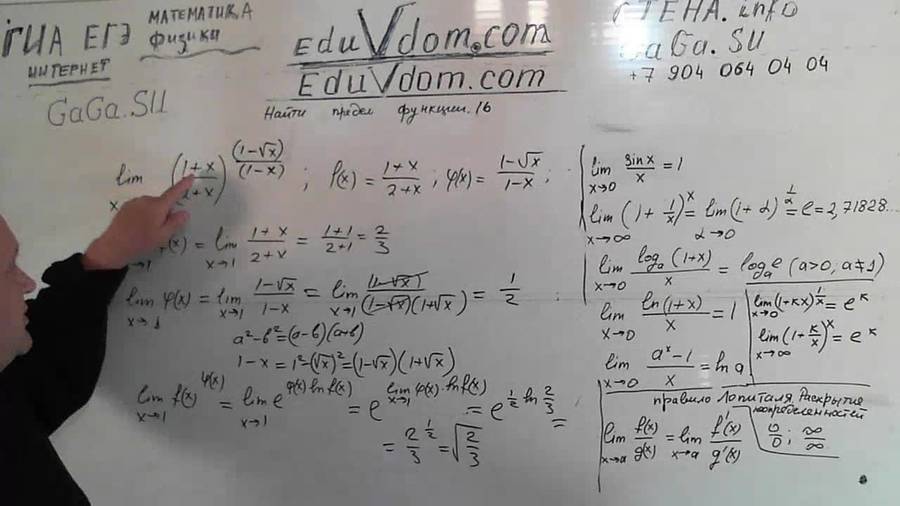 ГИА ЕГЭ МАТЕМАТИКА
физики
ИНТЕРНЕТ
GaGa.SU
EduVdom.com
EduVdom.com
Найти предел функции. 16
СТЕНА.info
GaGa.SU
+7 904 064 04 04
lim ((1+x)/(2+x))^((1-√x)/(1-x)) ; f(x) = (1+x)/(2+x) ; φ(x) = (1-√x)/(1-x) ;
(x) = lim x→1 (1+x)/(2+x) = (1+1)/(2+1) = 2/3
lim x→1 φ(x) = lim x→1 (1-√x)/(1-x) = lim x→1 (1-√x)/((1-√x)(1+√x)) = 1/2
a²-b²=(a-b)(a+b)
1-x=1²-(√x)²=(1-√x)(1+√x)
lim x→1 f(x)^φ(x) = lim x→1 e^(φ(x) ln f(x)) = e^(lim x→1 φ(x)·ln f(x)) = e^(1/2 ln 2/3) =
= 2/3^(1/2) = √(2/3)
lim x→0 sinx/x = 1
lim x→∞ (1+1/x)^x = lim α→0 (1+α)^(1/α) = e = 2,71828...
lim x→0 logₐ(1+x)/x = logₐe (a>0, a≠1)
lim x→0 ln(1+x)/x = 1
lim x→0 (1+kx)^(1/x) = e^k
lim x→∞ (1+k/x)^x = e^k
lim x→0 (aˣ-1)/x = ln a
правило Лопиталя. Раскрытие
неопределенностей
lim x→a f(x)/g(x) = lim x→a f'(x)/g'(x)
0/0 ; ∞/∞